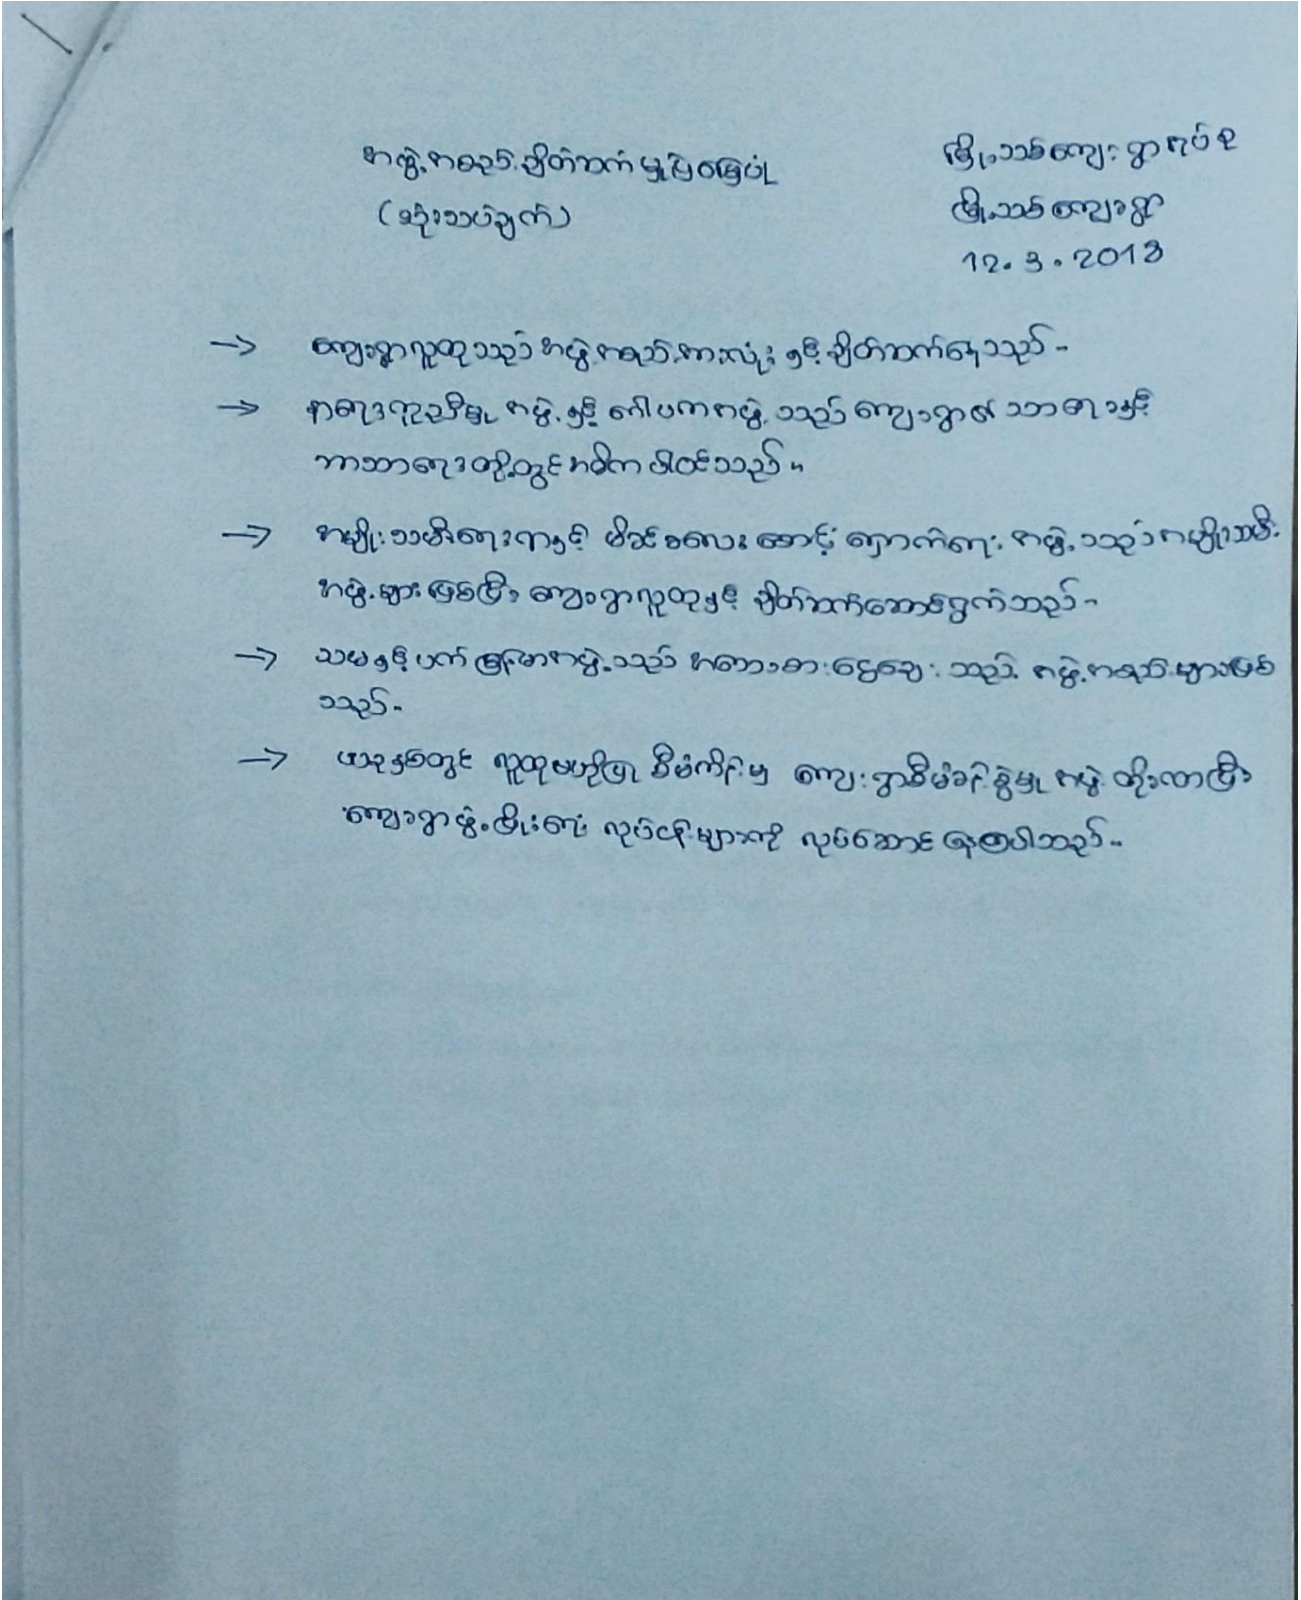 အဖွဲ့အစည်းချိတ်ဆက်မှုပြမြေပုံ
(သုံးသပ်ချက်)
မြို့သစ်ကျေးရွာအုပ်စု
မြို့သစ်ကျေးရွာ
12.3.2013
→ ကျေးရွာလူထုသည် အဖွဲ့အစည်းအားလုံးနှင့် ချိတ်ဆက်နေသည်။
→ နာရေးကူညီမှု အဖွဲ့နှင့် ဂေါပကအဖွဲ့သည် ကျေးရွာ၏ သာရေးနှင့်
ဘာသာရေးတို့တွင် အဓိက ပါဝင်သည်။
→ အမျိုးသမီးရေးရာနှင့် မိခင်ကလေး စောင့်ရှောက်ရေး အဖွဲ့သည် အမျိုးသမီး
အဖွဲ့များဖြစ်ပြီး ကျေးရွာလူထုနှင့် ချိတ်ဆက်ဆောင်ရွက်သည်။
→ သမနှင့် ပက်မြန်မာအဖွဲ့သည် အသေးစားငွေချေးသည့် အဖွဲ့အစည်းများဖြစ်
သည်။
→ ယခုနှစ်တွင် လူထုဗဟိုပြု စီမံကိန်းမှ ကျေးရွာစီမံခန့်ခွဲမှု အဖွဲ့ တိုးလာပြီး
ကျေးရွာဖွံ့ဖြိုးရေး လုပ်ငန်းများကို လုပ်ဆောင် နေပါသည်။